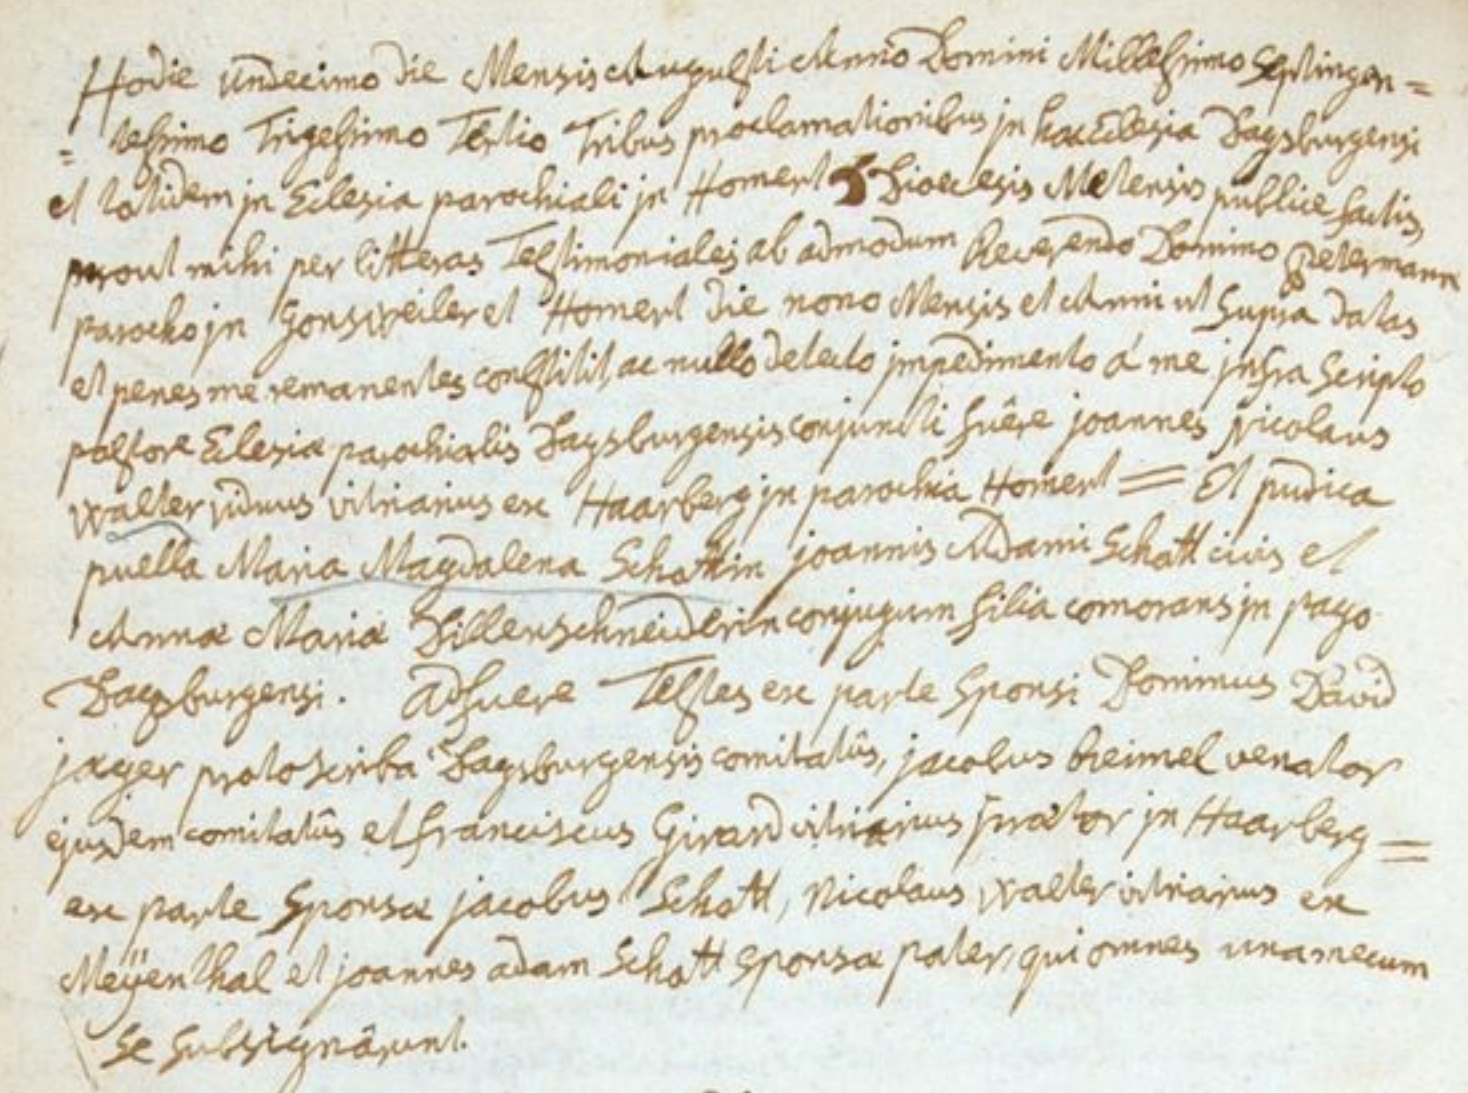 Hodie undecimo die Mensis Augusti Anno Domini Millesimo Septingen=
=tesimo Trigesimo Tertio Tribus proclamationibus jn hac Eclesia Dagsburgensi
et totidem jn Eclesia parochiali jn Homert Dioecesis Metensis publice factis,
prout mihi per litteras Testimoniales ab admodum Reverendo Domino Petermann
parocho jn Gonsweiler et Homert die nono Mensis et Anni ut Supra datas
et penes me remanentes constitit, ac nullo detecto jmpedimento á me jnfra Scripto
pastore Eclesiæ parochialis Dagsburgensis conjuncti fuêre joannes Nicolaus
Walter viduus vitriarius ex Haarberg jn parochia Homert = Et pudica
puella Maria Magdalena Schottin joannis Adami Schott civis et
Annæ Mariæ Dillenschneiderin conjugum filia comorans jn pago
Dagsburgensi. Adfuere Testes ex parte Sponsi Dominus David
jæger protoscriba Dagsburgensis comitatûs, jacobus Reimel venator
ejusdem comitatûs et franciscus Girard vitriarius prætor jn Haarberg =
ex parte Sponsæ jacobus Schott, Nicolaus Walter vitriarius ex
Meÿenthal et joannes adam Schott Sponsæ pater, qui omnes una mecum
Se Subsignârunt.